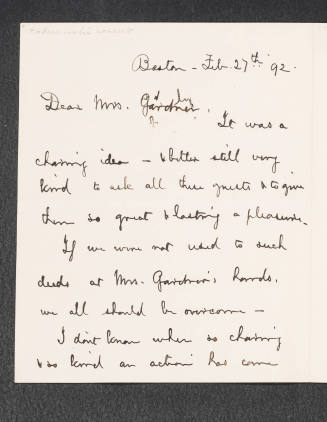 Boston - Feb. 27th '92.
Dear Mrs. Gardner.
It was a
charming idea - & better still very
kind to ask all these guests & to give
them so great & lasting a pleasure.
If we were not used to such
deeds at Mrs. Gardner's hands,
we all should be overcome -
I don't know when so charming
& so kind an action has come